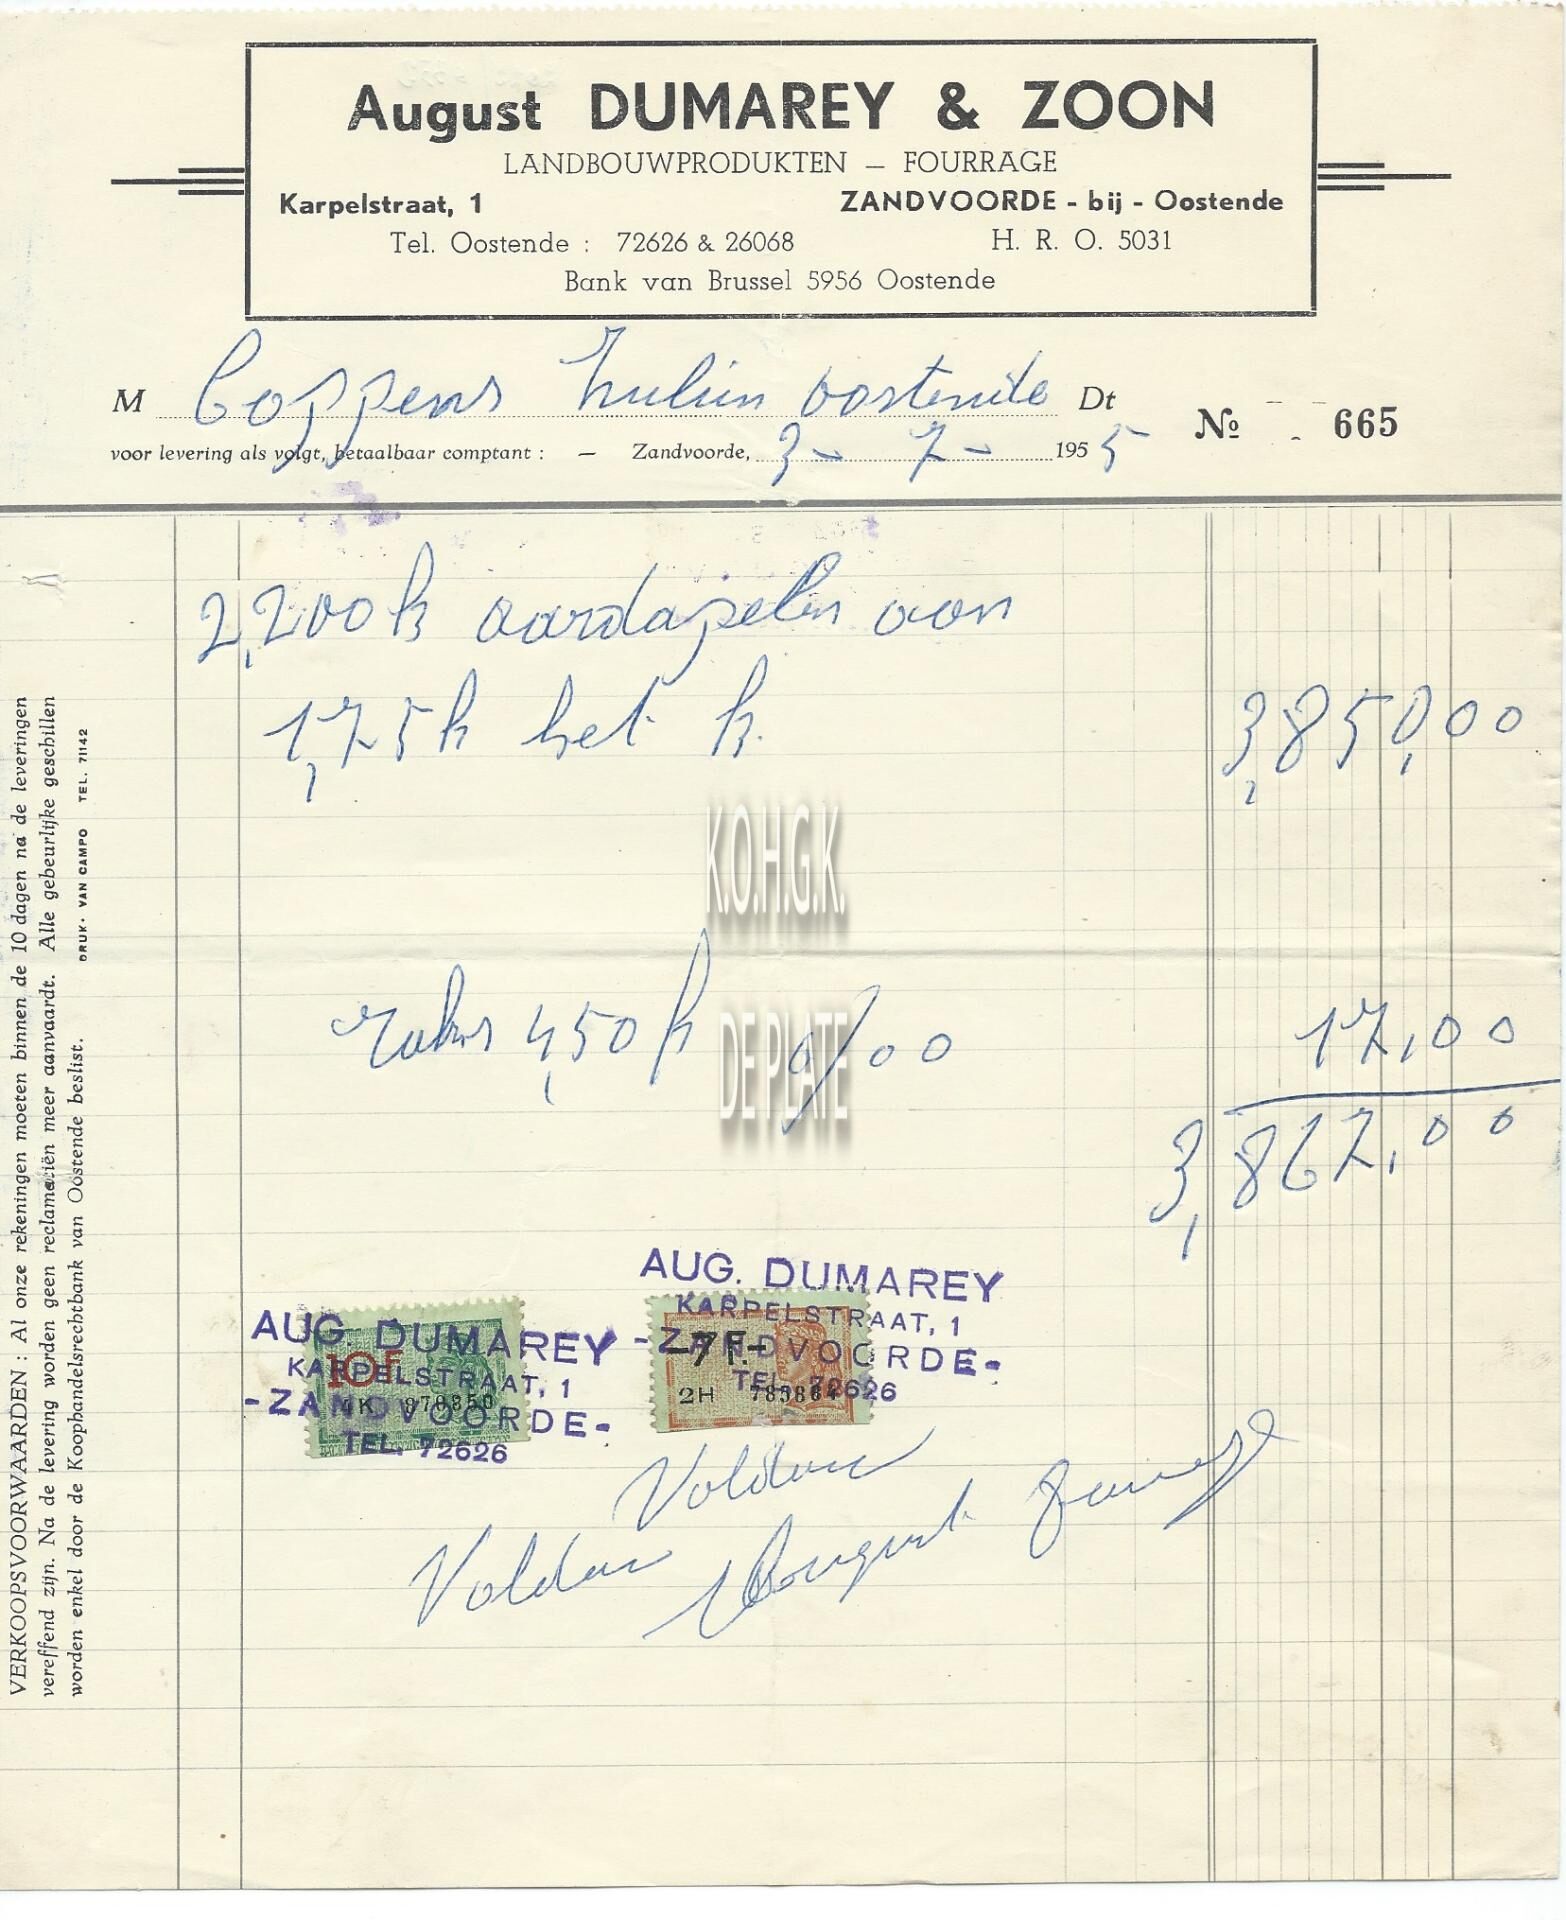 August DUMAREY & ZOON
LANDBOUWPRODUKTEN — FOURRAGE
Karpelstraat, 1 ZANDVOORDE - bij - Oostende
Tel. Oostende : 72626 & 26068 H. R. O. 5031
Bank van Brussel 5956 Oostende
M Coppens oostende Dt
voor levering als volgt, betaalbaar comptant : — Zandvoorde, 3 - 7 - 1955 No 665
2,200 k aardapelen aan
1,75 k het k. 3,850,00
K.O.H.G.K.
DE PLATE
4,50 0/00 17,00
3,867,00
AUG. DUMAREY
KARPELSTRAAT, 1
-ZANDVOORDE-
TEL. 72626
10F
AUG. DUMAREY
KARPELSTRAAT, 1
-ZANDVOORDE-
TEL. 72626
7F.-
2H
Voldaan
Voldaan August
VERKOOPSVOORWAARDEN : Al onze rekeningen moeten binnen de 10 dagen na de leveringen
vereffend zijn. Na de levering worden geen reclamatiën meer aanvaardt. Alle gebeurlijke geschillen
worden enkel door de Koophandelsrechtbank van Oostende beslist.
DRUK. VAN CAMPO TEL. 71142